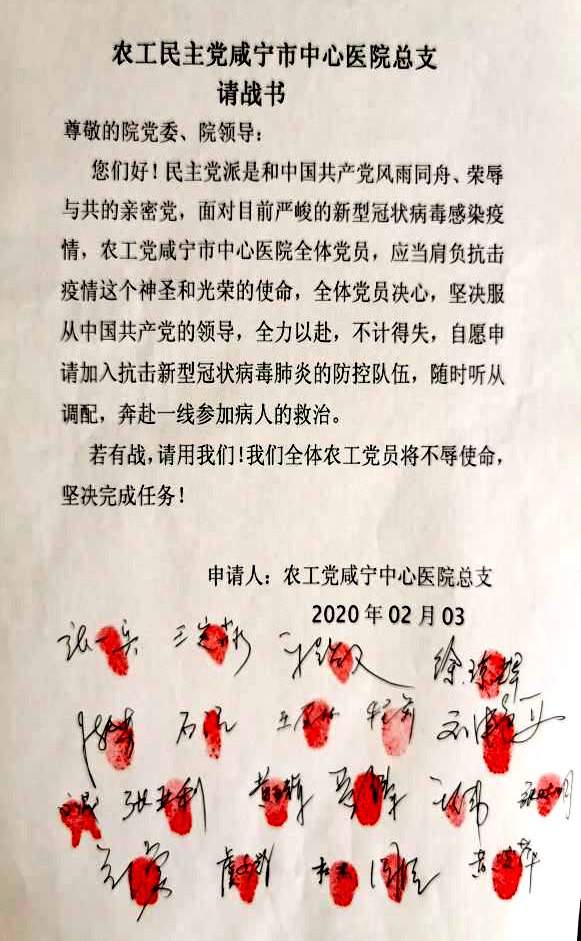 农工民主党咸宁市中心医院总支
请战书
尊敬的院党委、院领导：
您们好！民主党派是和中国共产党风雨同舟、荣辱
与共的亲密党，面对目前严峻的新型冠状病毒感染疫
情，农工党咸宁市中心医院全体党员，应当肩负抗击
疫情这个神圣和光荣的使命，全体党员决心，坚决服
从中国共产党的领导，全力以赴，不计得失，自愿申
请加入抗击新型冠状病毒肺炎的防控队伍，随时听从
调配，奔赴一线参加病人的救治。
若有战，请用我们！我们全体农工党员将不辱使命，
坚决完成任务！
申请人：农工党咸宁中心医院总支
2020 年 02 月 03